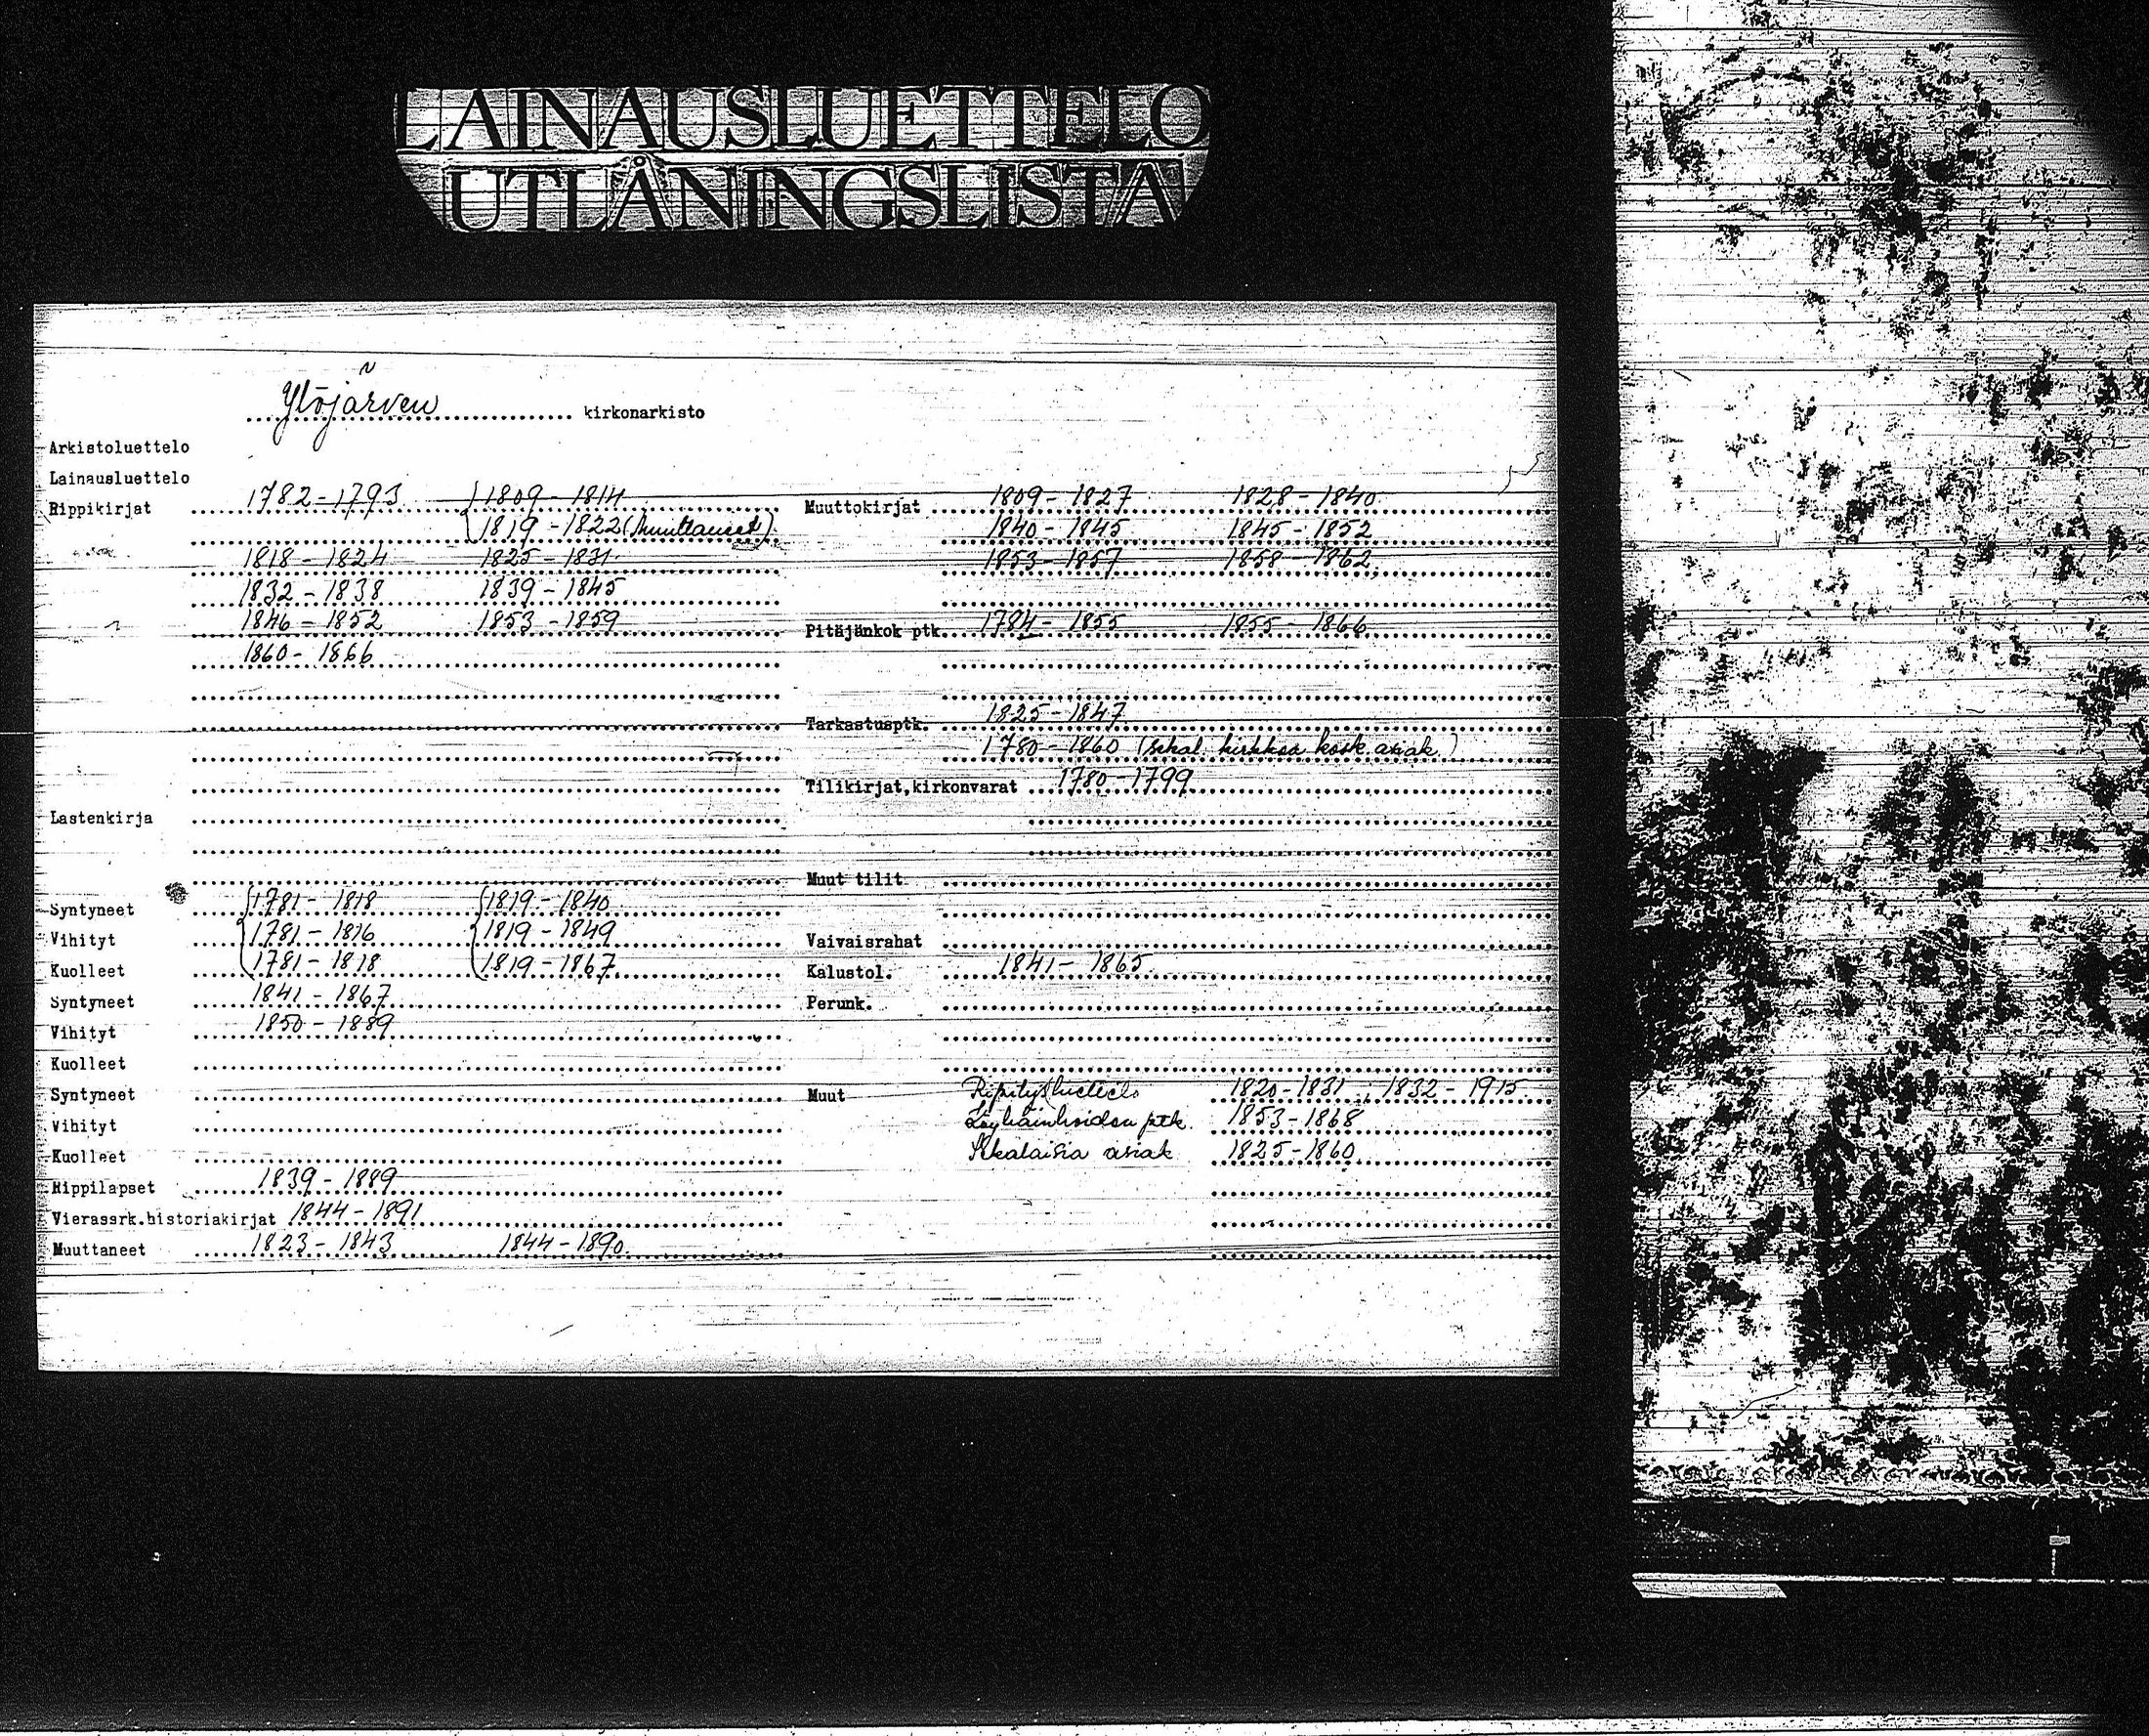 LAINAUSLUETTELO
UTLÅNINGSLISTA
Ylöjärven kirkonarkisto
Arkistoluettelo
Lainausluettelo
Rippikirjat 1782-1793 1809-1814
1819-1822 (Muuttaneet)
1818-1824 1825-1831
1832-1838 1839-1845
1846-1852 1853-1859
1860-1866
Lastenkirja
Syntyneet 1781-1818 1819-1840
Vihityt 1781-1816 1819-1849
Kuolleet 1781-1818 1819-1867
Syntyneet 1841-1867
Vihityt 1850-1889
Kuolleet
Syntyneet
Vihityt
Kuolleet
Rippilapset 1839-1889
Vierassrk.historiakirjat 1844-1891
Muuttaneet 1823-1843 1844-1890
Muuttokirjat 1809-1827 1828-1840
1840-1845 1845-1852
1853-1857 1858-1862
Pitäjänkok ptk. 1784-1855 1855-1866
Tarkastusptk. 1825-1847
1780-1860 (sekal. kirkkoa kosk. asiak.)
Tilikirjat,kirkonvarat 1780-1799
Muut tilit
Vaivaisrahat
Kalustol. 1841-1865
Perunk.
Muut Ripitysluettelo 1820-1831, 1832-1915
Köyhäinhoidon ptk. 1853-1868
Sekalaisia asiak 1825-1860